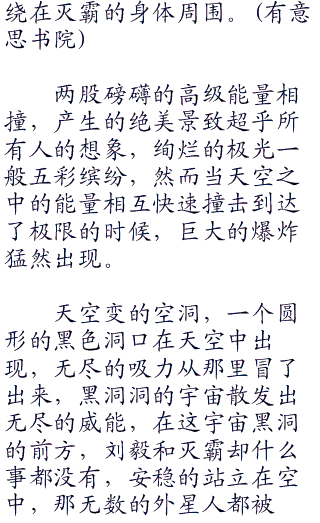 绕在灭霸的身体周围。（有意
思书院）
两股磅礴的高级能量相
撞，产生的绝美景致超乎所
有人的想象，绚烂的极光一
般五彩缤纷，然而当天空之
中的能量相互快速撞击到达
了极限的时候，巨大的爆炸
猛然出现。
天空变的空洞，一个圆
形的黑色洞口在天空中出
现，无尽的吸力从那里冒了
出来，黑洞洞的宇宙散发出
无尽的威能，在这宇宙黑洞
的前方，刘毅和灭霸却什么
事都没有，安稳的站立在空
中，那无数的外星人都被